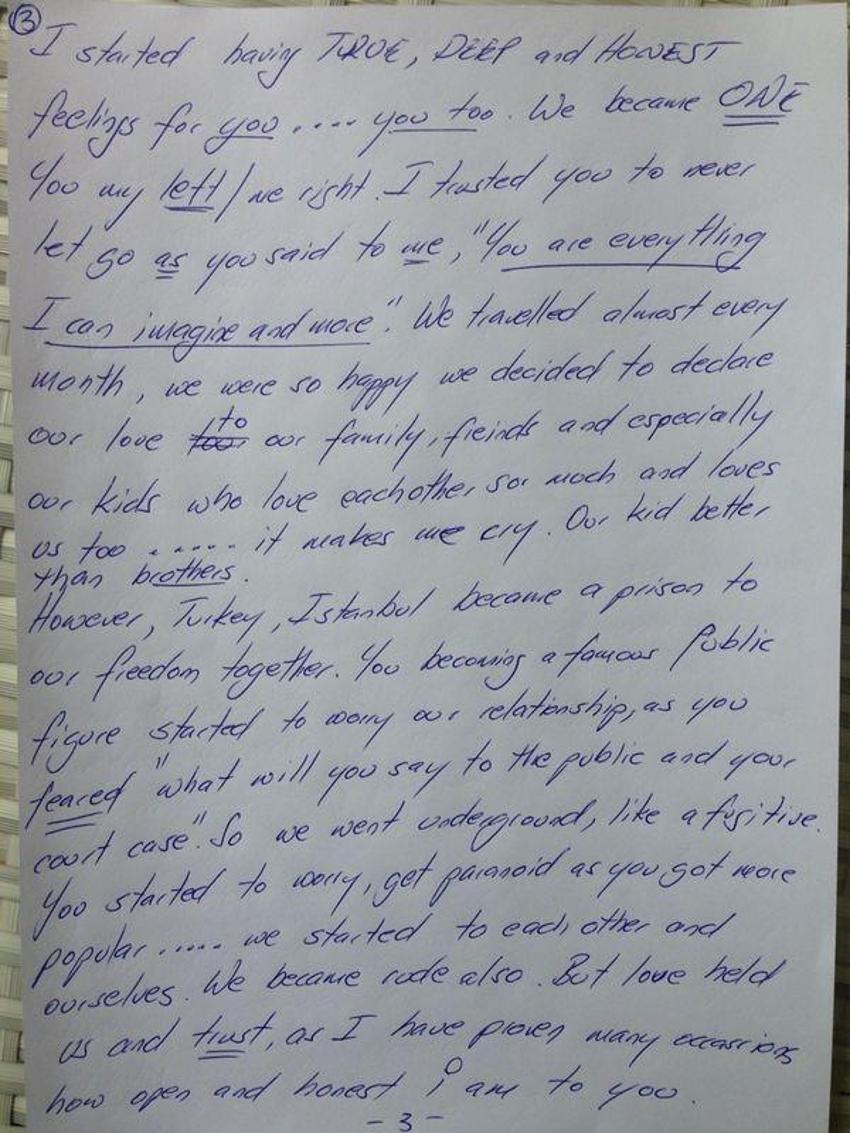 ③
I started having TRUE, DEEP and HONEST
feelings for you .... you too. We became ONE
You my left / me right. I trusted you to never
let go as you said to me, "You are everything
I can imagine and more". We travelled almost every
month, we were so happy we decided to declare
our love to our family, fieinds and especially
our kids who love eachother so much and loves
us too ..... it makes me cry. Our kid better
than brothers.
However, Turkey, Istanbul became a prison to
our freedom together. You becoming a famous Public
figure started to worry our relationship, as you
feared "what will you say to the public and your
court case". So we went underground, like a fugitive.
You started to worry, get paranoid as you got more
popular ..... we started to each other and
ourselves. We became rude also. But love held
us and trust, as I have proven many occassions
how open and honest i am to you.
- 3 -